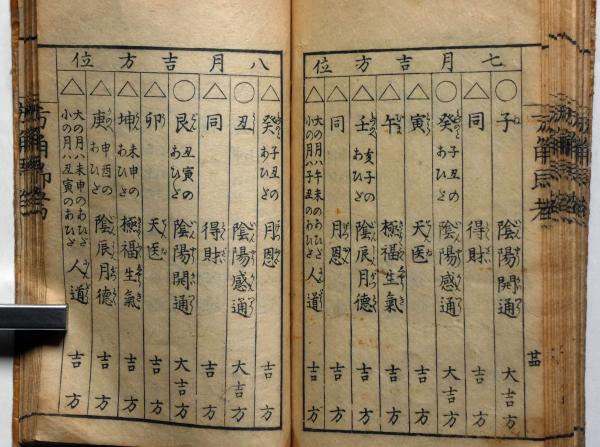 七月吉方位
○子 陰陽開通 大吉方
△同 得財 吉方
○癸 子丑のあひだ 陰陽感通 大吉方
△寅 天医 吉方
△午 極福生氣 吉方
△壬 亥子のあひだ 陰辰月德 吉方
△同 月恩 吉方
△大の月ハ午未のあひだ
小の月ハ子丑のあひだ 人道 吉方
八月吉方位
△癸 子丑のあひだ 月恩 吉方
○丑 陰陽感通 大吉方
△同 得財 吉方
○艮 丑寅のあひだ 陰陽開通 大吉方
△卯 天医 吉方
△坤 未申のあひだ 極福生氣 吉方
△庚 申酉のあひだ 陰辰月德 吉方
△大の月ハ未申のあひだ
小の月ハ丑寅のあひだ 人道 吉方